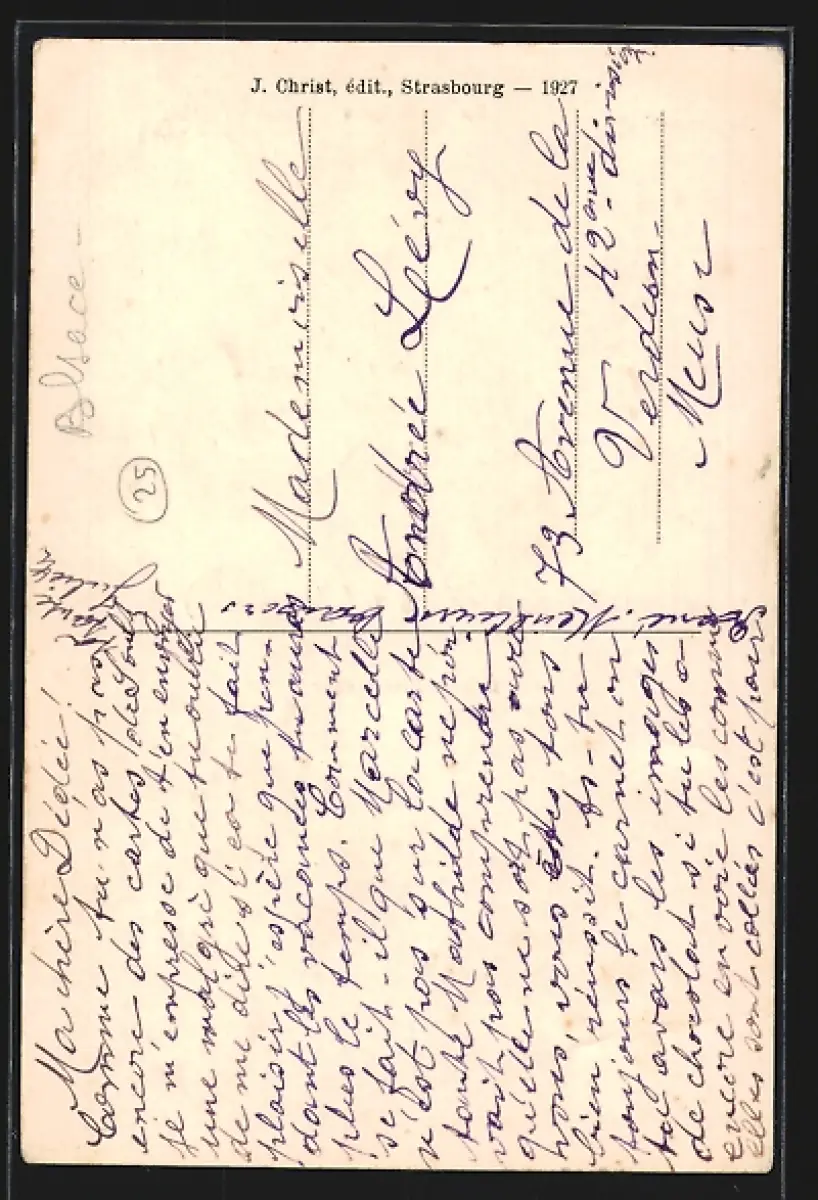 J. Christ, édit., Strasbourg — 1927
Alsace -
25
Mademoiselle
Andrée Lévy
73 Avenue de la
42ème division
Verdun
Meuse
Ma chère Dédée!
Comme tu n'as pas
encore des cartes de Soultz
je m'empresse de t'en envoyer
une malgré que tu oublie
de me dire si ça te fait
plaisir j'espère que pen-
dant les vacances tu auras
plus le temps. Comment
se fait-il que Marcelle
n'est pas sur la carte
tante Mathilde ne pou-
vait pas comprendre
qu'elle ne soit pas avec
vous, vous êtes tous
bien réussit. As-tu
toujours le carnet ou
tu avais les images
de chocolat si tu les a
encore envoie les comme
elles sont collées c'est pour
René. Meilleurs
baisers
Tante
Juliette